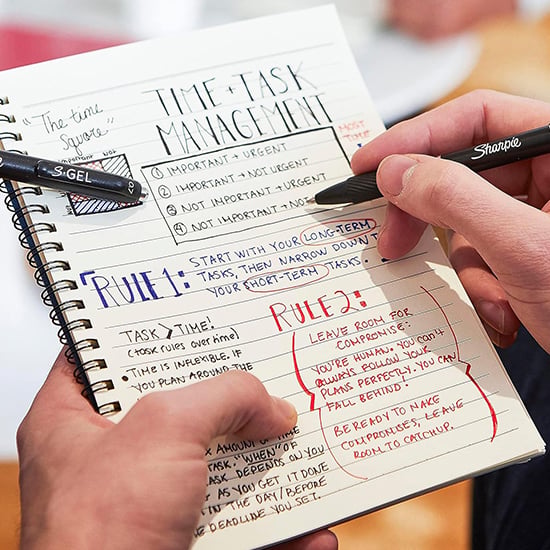 "The time
Square"
TIME + TASK
MANAGEMENT
MOST
TIME
① IMPORTANT + URGENT
② IMPORTANT + NOT URGENT
③ NOT IMPORTANT + URGENT
④ NOT IMPORTANT + NOT
S·GEL
Sharpie
RULE 1:
START WITH YOUR LONG-TERM
TASKS, THEN NARROW DOWN T
YOUR SHORT-TERM TASKS.
TASK > TIME!
(task rules over time)
• TIME IS INFLEXIBLE. IF
YOU PLAN AROUND THE
X AMOUNT OF TIME
TASK. "WHEN" OF
TASK DEPENDS ON YOU
AS YOU GET IT DONE
IN THE DAY/BEFORE
THE DEADLINE YOU SET.
RULE 2:
LEAVE ROOM FOR
COMPROMISE:
YOU'RE HUMAN. YOU CAN'T
ALWAYS FOLLOW YOUR
PLANS PERFECTLY. YOU CAN
FALL BEHIND!
BE READY TO MAKE
COMPROMISES, LEAVE
ROOM TO CATCHUP.